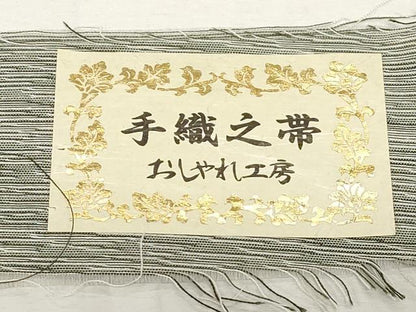 手織之帯
おしゃれ工房